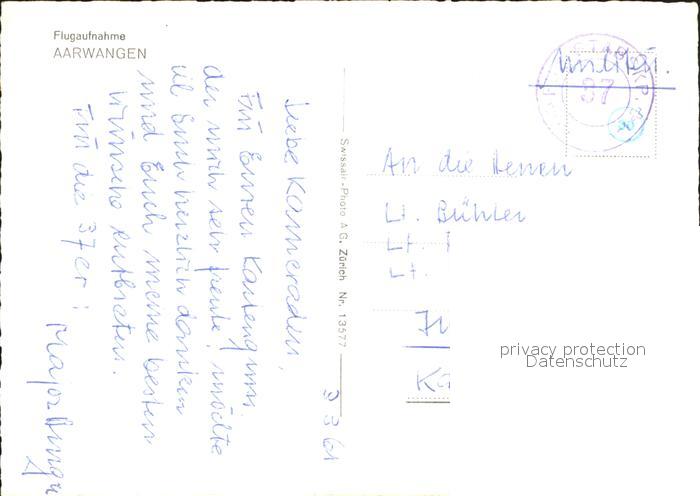 Flugaufnahme
AARWANGEN
Liebe Kameraden,
Für Euren Kartengruss,
der mich sehr freute, möchte
ich Euch herzlich danken
und Euch meine besten
Wünsche entbieten.
Für die 37er:
Major
3 3 61
Swissair-Photo AG. Zürich Nr. 13577
Militär.
37
An die Herren
Lt. Bühler
Lt.
Lt.
privacy protection
Datenschutz